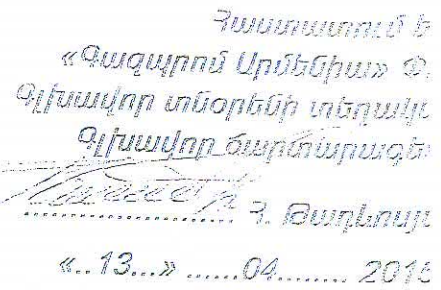 Հաստատում ե
«Գազպրոմ Արմենիա» Փ
Գլխավոր տնօրենի տեղակ
Գլխավոր ճարտարագե
Հ. Թադևոսյ
«..13...» ......04........ 201